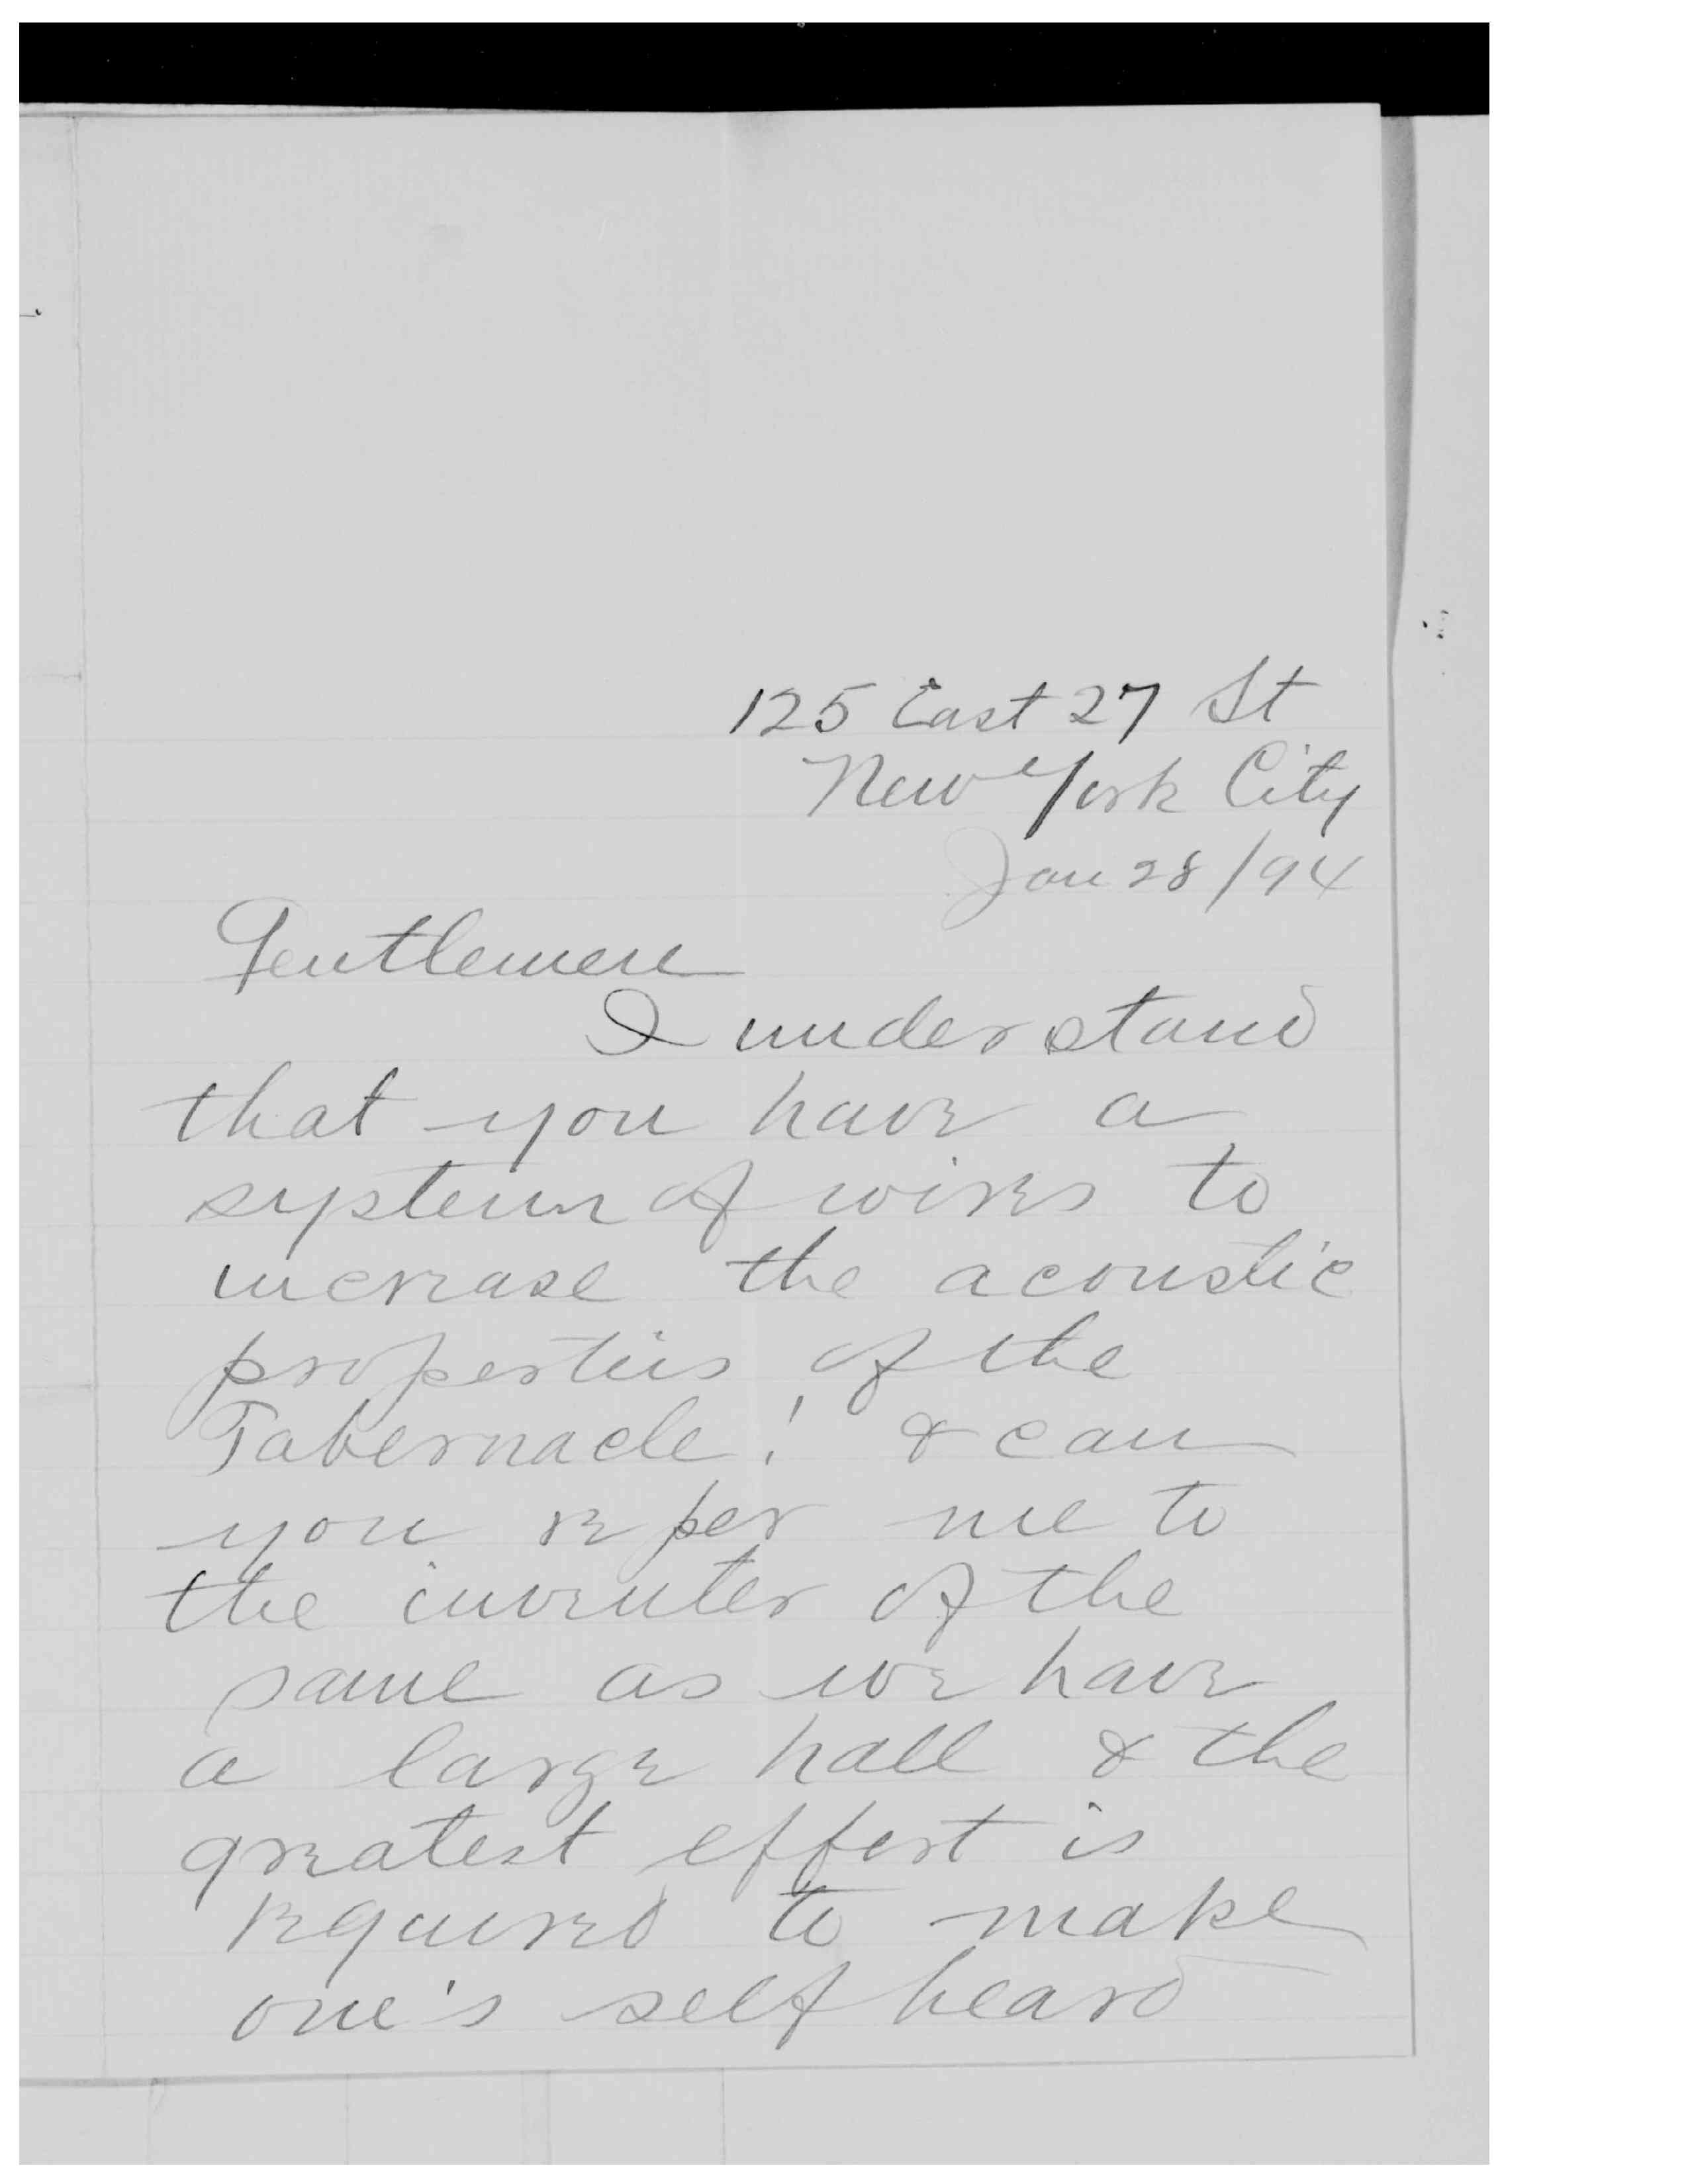 125 East 27 St
New York City
Jan 28/94
Gentlemen
I understand
that you have a
system of wires to
increase the acoustic
properties of the
Tabernacle! & can
you refer me to
the inventer of the
same as we have
a large hall & the
greatest effort is
required to make
one's self heard